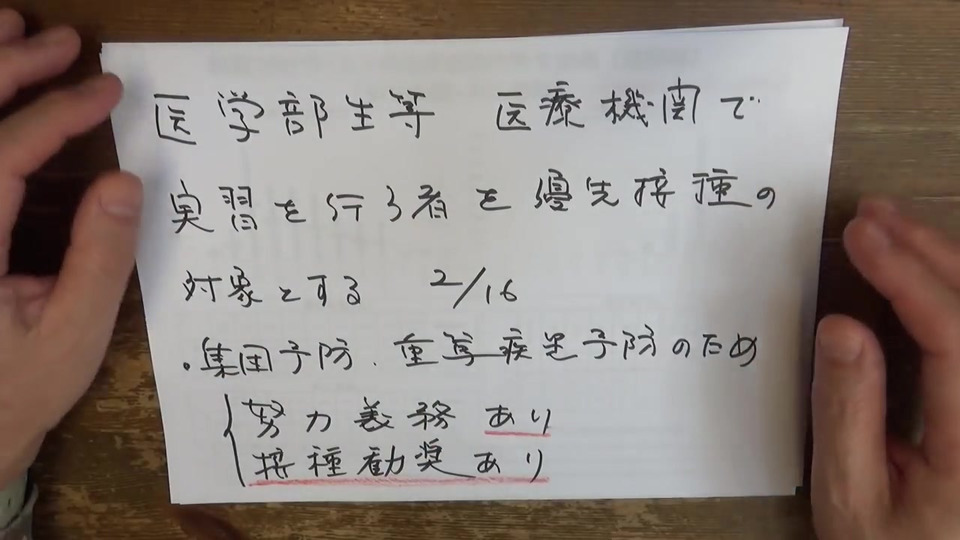 医学部生等 医療機関で
実習を行う者を優先接種の
対象とする 2/16
・集団予防、重篤疾患予防のため
努力義務あり
接種勧奨あり